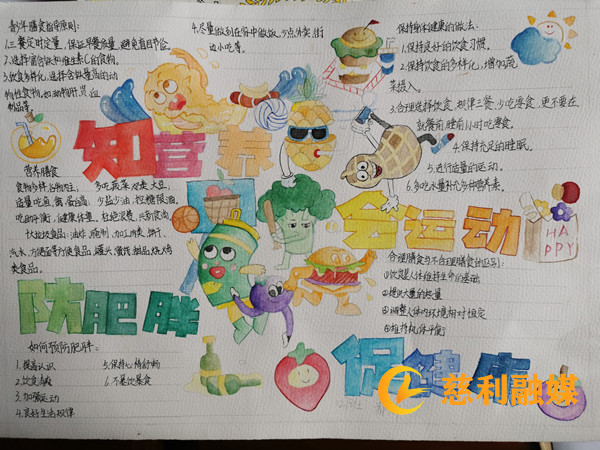 青少年膳食指导原则:
1.三餐定时定量,保证早餐质量,避免盲目节食。
2.选择富含铁和维生素C的食物。
3.饮食多样化,选择含钙量高的动
物性食物,如动物肝,
制品等。
4.尽量做到在家中做饭,少点外卖,街
边小吃等。
保持身体健康的做法:
1.保持良好的饮食习惯。
2.保持饮食的多样化,增加蔬
菜摄入。
3.合理选择饮食,规律三餐,少吃零食,更不要在
就餐前,睡前1小时吃零食。
4.保持充足的睡眠。
5.进行适量的运动。
6.多吃水果补充多种营养素。
知营养
营养膳食
食物多样,谷物为主,
适量吃鱼,禽,蛋,瘦
吃动平衡,健康体重,
垃圾食品:油炸,腌制,加工肉类,饼干,
汽水,方便面等方便食品,罐头,蜜饯,甜品,烧烤
类食品。
多吃蔬菜,奶类,大豆,
少盐少油,控糖限酒,
杜绝浪费,兴新食尚
会运动
HA
PPY
合理膳食与不合理膳食的区别:
①饮食是人体维持生命的基础
②提供大量的热量
③调整人体内环境相对恒定
④维持机体平衡
防肥胖
如何预防肥胖:
1.提高认识
2.饮食清淡
3.加强运动
4.良好生活规律
5.保持心情舒畅
6.不暴饮暴食
促健康
慈利融媒